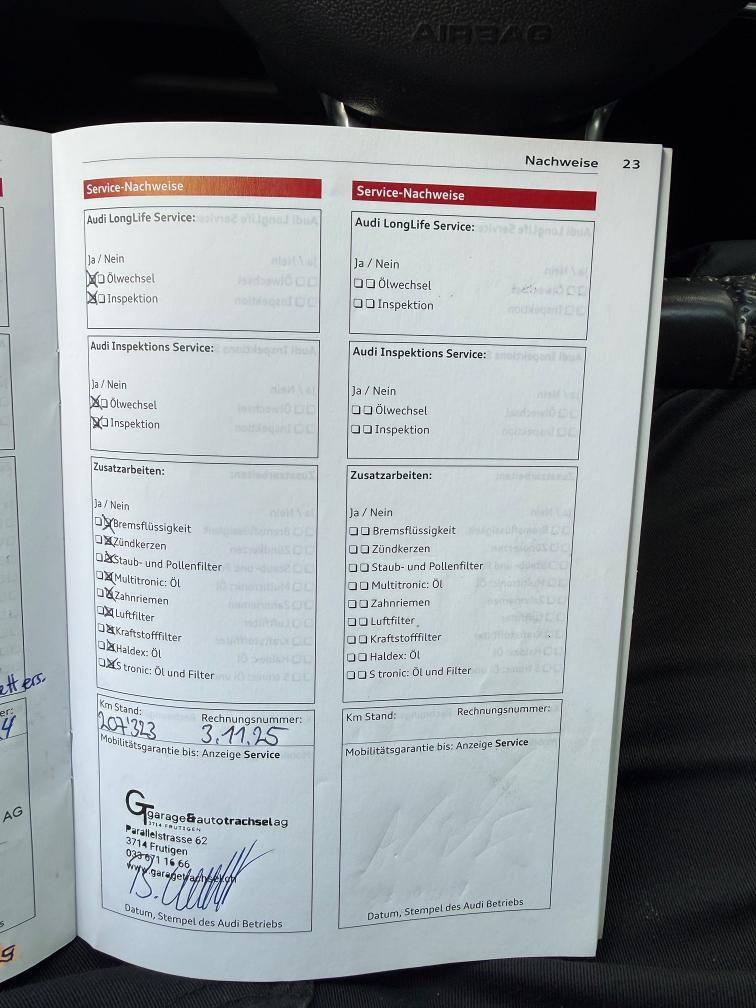 AIRBAG
Nachweise 23
Service-Nachweise
Audi LongLife Service:
Ja / Nein
Ölwechsel
Inspektion
Audi Inspektions Service:
Ja / Nein
Ölwechsel
Inspektion
Zusatzarbeiten:
Ja / Nein
Bremsflüssigkeit
Zündkerzen
Staub- und Pollenfilter
Multitronic: Öl
Zahnriemen
Luftfilter
Kraftstofffilter
Haldex: Öl
S tronic: Öl und Filter
Km Stand: Rechnungsnummer:
207'323 3.11.25
Mobilitätsgarantie bis: Anzeige Service
GT garage&autotrachsel ag
3714 FRUTIGEN
Parallelstrasse 62
3714 Frutigen
033 671 16 66
Datum, Stempel des Audi Betriebs
Service-Nachweise
Audi LongLife Service:
Ja / Nein
Ölwechsel
Inspektion
Audi Inspektions Service:
Ja / Nein
Ölwechsel
Inspektion
Zusatzarbeiten:
Ja / Nein
Bremsflüssigkeit
Zündkerzen
Staub- und Pollenfilter
Multitronic: Öl
Zahnriemen
Luftfilter
Kraftstofffilter
Haldex: Öl
S tronic: Öl und Filter
Km Stand: Rechnungsnummer:
Mobilitätsgarantie bis: Anzeige Service
Datum, Stempel des Audi Betriebs
AG